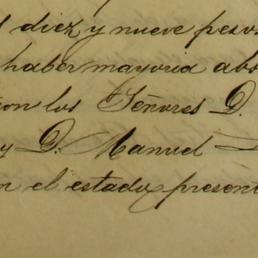 diez y nueve pesos
haber mayoria abs
con los Señores D.
y D. Manuel
en el estado presen